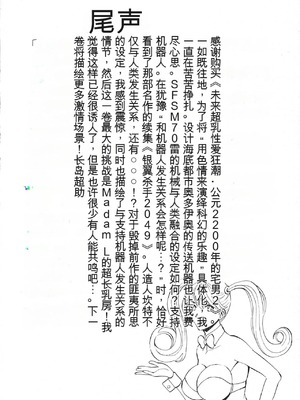 尾声
感谢购买《未来超乳性爱狂潮，公元2200年的宅男2》
一如既往地，为了将“用色情来演绎科幻的乐趣”具体化，我
一直在苦苦挣扎。设计海底都市奥多伊奥的传送机器也让我费
尽心思。SFSM70雷的机械与人类融合的设定如何？支持
机器人。在犹豫“和机器人发生关系会怎样呢…？”时，恰好
看到了那部名作的续集《银翼杀手2049》。人造人坎特不
仅与人类发生关系，还有○○○！？对于毁掉前作的匪夷所思
的设定，我感到震惊，同时也描绘了与支持机器人发生关系的
情节，然后这一卷最大的挑战是Madam L的超长乳房！我
觉得这样已经很诱人了，但是也许很少有人能共鸣吧…。下一
卷将描绘更多激情场景！长岛超助